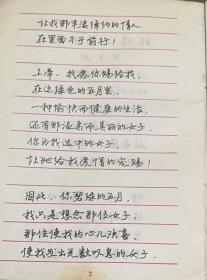 让我那丰满缠绵的情人
在里面举步前行！
上帝，我愿你赐给我，
在这绿色的五月里，
一种愉快而健康的生活，
还有那温柔而美丽的女子，
你为我选中的女子，
让她给我爱情的完踢！
因此，你碧绿的五月，
我只是想念那位女子，
那位使我的心儿欢喜，
使我发出无数叹息的女子．
2